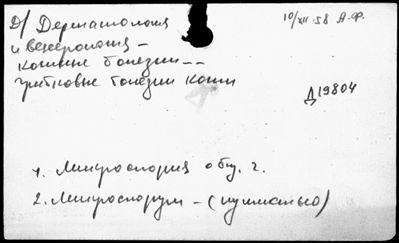 Д/ Дерматология
и венерология –
кожные болезни --
грибковые болезни кожи
10/XII-58 А.Ф.
Д19804
1. Микроспория общ. ч.
2. Микроспорум – (